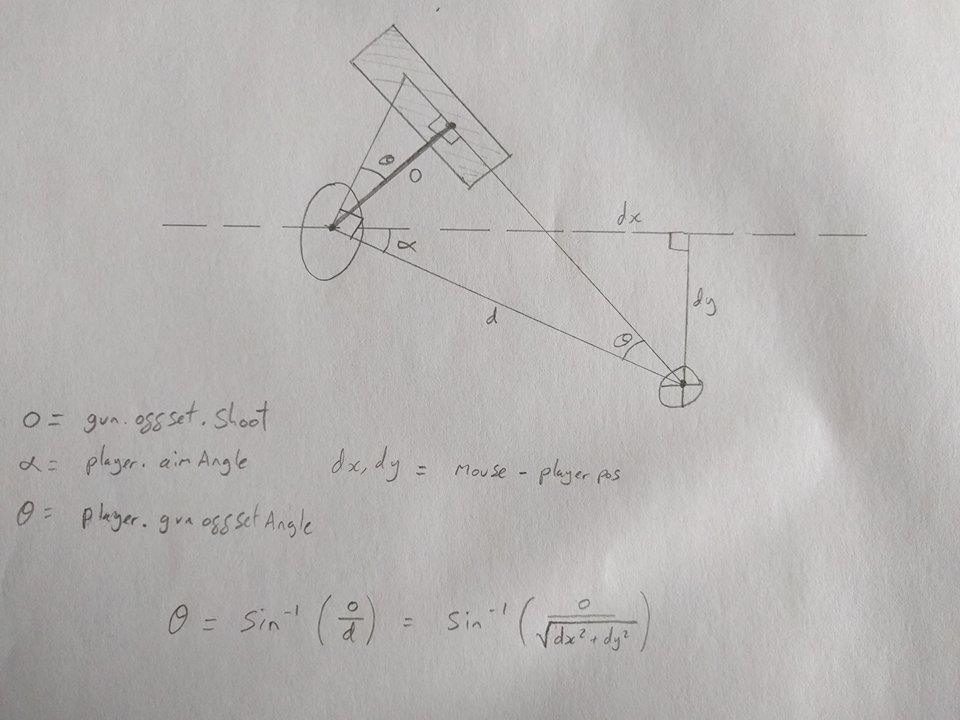 θ
O
dx
α
dy
d
θ
O = gun.offset.shoot
α = player.aimAngle dx,dy = mouse - player pos
θ = player.gunoffsetAngle
θ = Sin⁻¹ (o/d) = Sin⁻¹ (o/√(dx²+dy²))